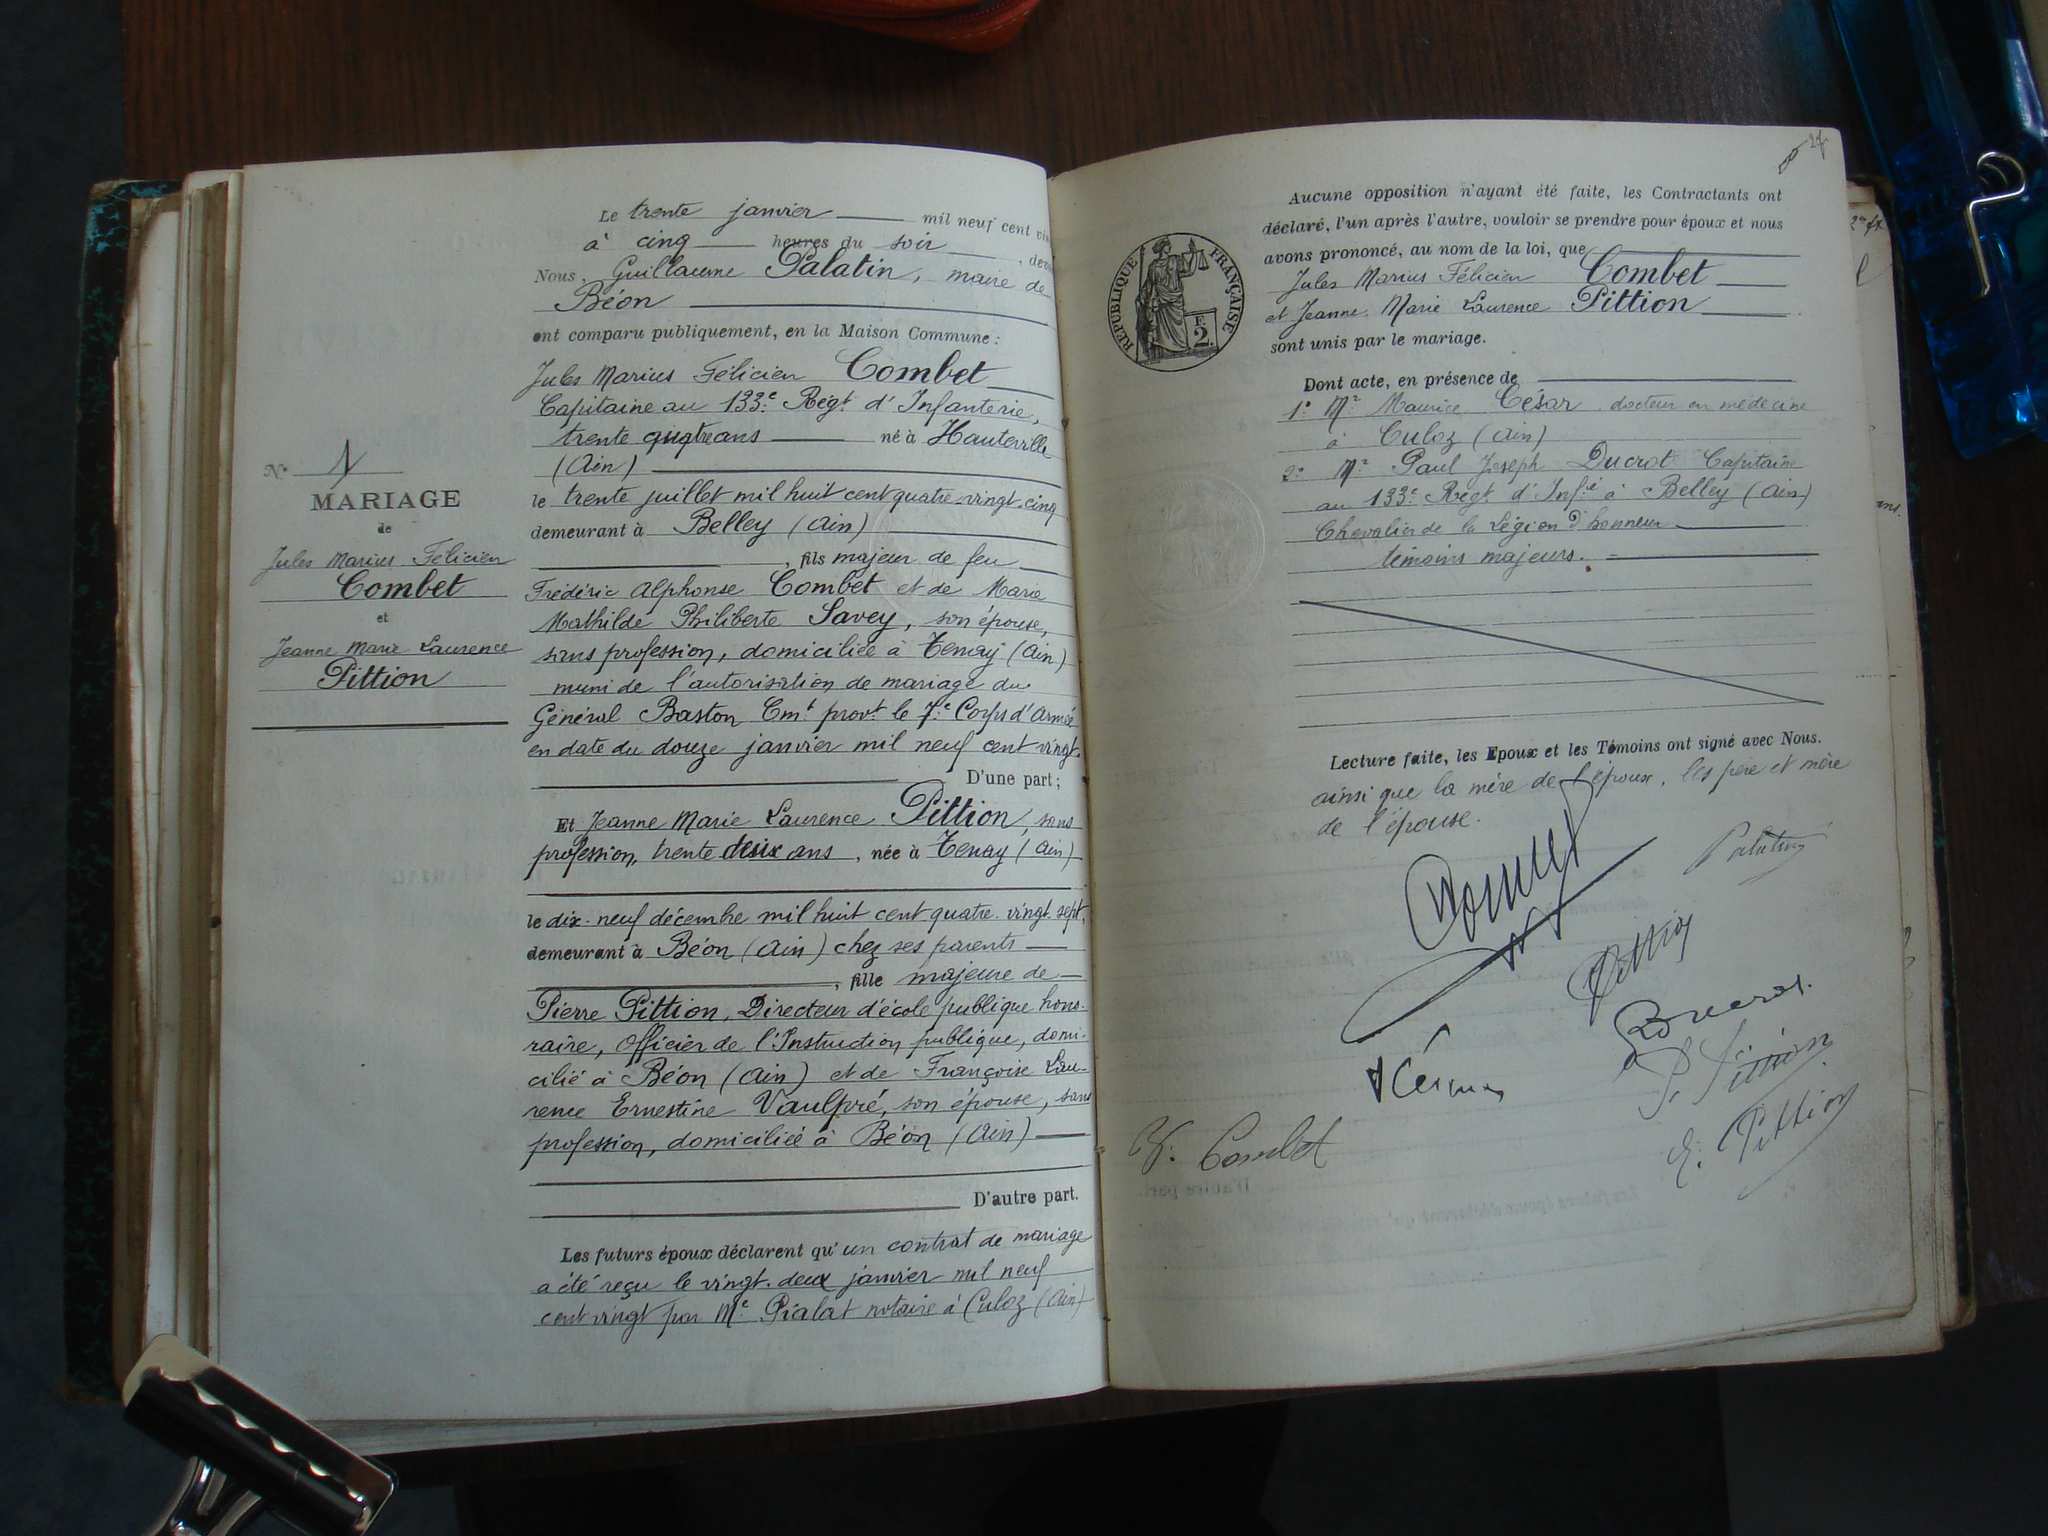 Le trente janvier mil neuf cent
à cinq heures du soir
Nous, Guillaume Palatin, maire de
Béon
ont comparu publiquement, en la Maison Commune :
Jules Marius Félicien Combet
Capitaine au 133e Régt d'Infanterie,
trente quatre ans né à Hauteville
(Ain)
le trente juillet mil huit cent quatre-vingt-cinq
demeurant à Belley (Ain)
, fils majeur de feu
Frédéric Alphonse Combet et de Marie
Mathilde Philiberte Savey, son épouse,
sans profession, domiciliée à Tenay (Ain)
muni de l'autorisation de mariage du
Général Baston Cmt provt le 7e Corps d'Armée
en date du douze janvier mil neuf cent vingt.
D'une part ;
Et Jeanne Marie Laurence Pittion, sans
profession, trente deux ans, née à Tenay (Ain)
le dix-neuf décembre mil huit cent quatre-vingt sept,
demeurant à Béon (Ain) chez ses parents
, fille majeure de
Pierre Pittion, Directeur d'école publique hono-
raire, Officier de l'Instruction publique, domi-
cilié à Béon (Ain) et de Françoise Lau-
rence Ernestine Vaulpré, son épouse, sans
profession, domiciliée à Béon (Ain)
D'autre part.
Les futurs époux déclarent qu'un contrat de mariage
a été reçu le vingt-deux janvier mil neuf
cent vingt par Me Pialat notaire à Culoz (Ain)
No 1
MARIAGE
de
Jules Marius Félicien
Combet
et
Jeanne Marie Laurence
Pittion
Aucune opposition n'ayant été faite, les Contractants ont
déclaré, l'un après l'autre, vouloir se prendre pour époux et nous
avons prononcé, au nom de la loi, que
Jules Marius Félicien Combet
et Jeanne Marie Laurence Pittion
sont unis par le mariage.
Dont acte, en présence de
1° Mr Maurice César, docteur en médecine
à Culoz (Ain)
2° Mr Paul Joseph Ducrot Capitaine
au 133e Régt d'Infie à Belley (Ain)
Chevalier de la Légion d'honneur
témoins majeurs.
Lecture faite, les Epoux et les Témoins ont signé avec Nous.
ainsi que la mère de l'époux, les père et mère
de l'épouse.
Combet
Palatin
Pittion
César
P. Pittion
E. Pittion
Combet
RÉPUBLIQUE FRANÇAISE
F.
2.